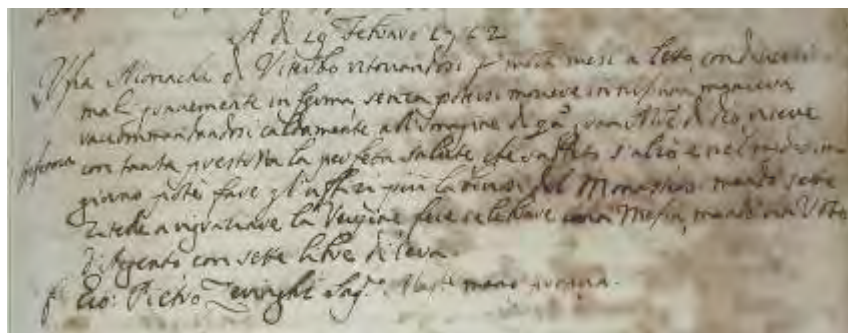 A dì 19 Febraro 1762
Una Monacha di Viterbo ritornandosi p molti mesi a letto, con diversi
mali gravemente inferma senza potersi movere in nissuna maniera
raccommandandosi caldamente all'Imagine di qa. gran Mre di Dio riceve
inferma
con tanta prestezza la perfetta salute, che subito s'alzò e nel medesimo
giorno potè fare gl'uffizi più laboriosi del Monastero. mandò sette
a ringraziare la Vergine fece celebrare una Messa, mandò un Voto
d'Argento con sette libre di Cera.
Gio: Pietro Sag. mano propria.